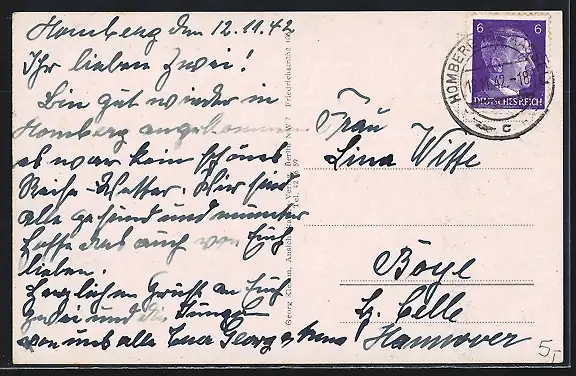 Homberg den 12.11.42
Ihr lieben Zwei!
Bin gut wieder in
Homberg angekommen
es war kein schönes
Reise-Wetter. Wir sind
alle gesund und munter
hoffe das auch von Euch
lieben.
Herzlichen Gruß an Euch
zwei und die Jungen
von uns alle Euer Georg
Georg Verlag, Berlin NW 7 Friedrichstraße
Tel. 42
6 6
DEUTSCHES REICH
HOMBERG
42.-18
c
Frau
Lina Witte
Boye
bg. Celle
Hannover
5,-